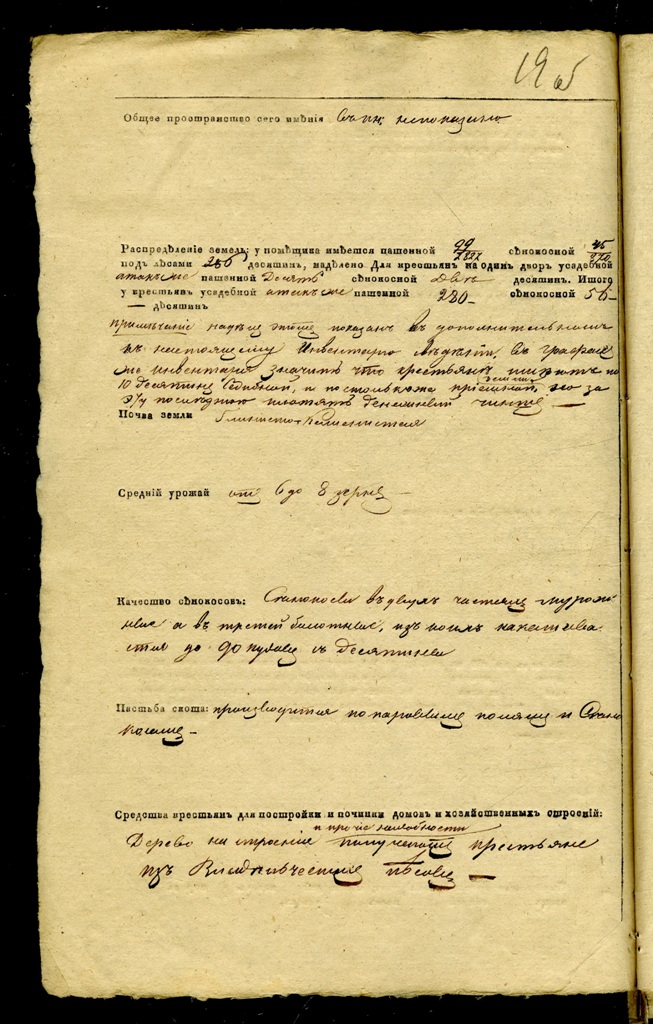 19 об
Общее пространство сего имѣнія въ нк. непоказано
Распредѣленіе земель: у помѣщика имѣется пашенной сѣнокосной
подъ лѣсами десятинъ, надѣлено Для крестьянъ на одинъ дворъ усадебной
пашенной Десять сѣнокосной двѣ десятинъ. Итого
у крестьянъ усадебной пашенной 280 — сѣнокосной 56 —
— десятинъ
примѣчаніе надѣлъ показанъ въ дополнительномъ
къ настоящему Инвентарю въ графѣ
же инвентаря значитъ что крестьяне имѣютъ по
10 десятинъ и по стольку же земли но за
эту послѣднюю платятъ денежный чиншъ —
Почва земли Глинисто-Каменистая
Средній урожай отъ 6 до 8 зеренъ —
Качество сѣнокосовъ: Сѣнокосы въ двухъ частяхъ мурож-
ные а въ третей болотные, изъ коихъ накашива-
ется до 90 пудовъ съ Десятины
Пастьба скота: производится по паровымъ полямъ и Сѣно-
косамъ —
Средства крестьян для постройки и починки домовъ и хозяйственныхъ строеній:
и проче надобности
Дерево на строеніе получаютъ крестьяне
изъ Владѣльческихъ лѣсовъ —